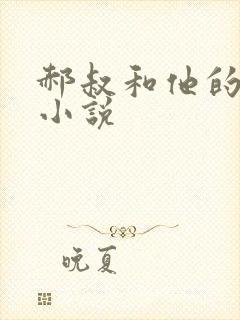 郝叔和他的
小说
晚夏